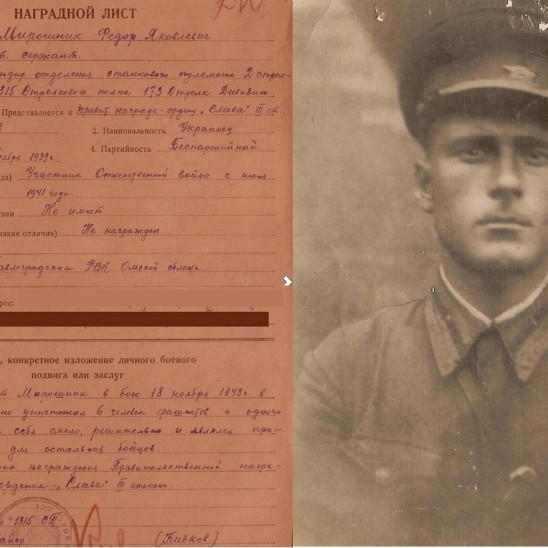 НАГРАДНОЙ ЛИСТ
Мирошник Федор Яковлевич
т. сержант.
ндир отделения станкового пулемета 2 отдел-
1315 Стрелкового полка 173 Стрелк. Дивизии
Представляется к Правит. награде-орден „Слава" III ст
2. Национальность Украинец
4. Партийность Беспартийной
1939 г.
да) Участник Отечественной войны с июня
1941 года
Не имеет
никакие отличия) Не награжден
авлоградский РВК Омской области
рес:
, конкретное изложение личного боевого
подвига или заслуг
т Мирошник в бою 18 ноября 1943 г. в
но уничтожил 6 человек фашистов и одного
себя смело, решительно и являлся при-
для остальных бойцов.
награждения Правительственной награ-
орденом - „Слава" III степени.
1315 СП
айор (Кивков)